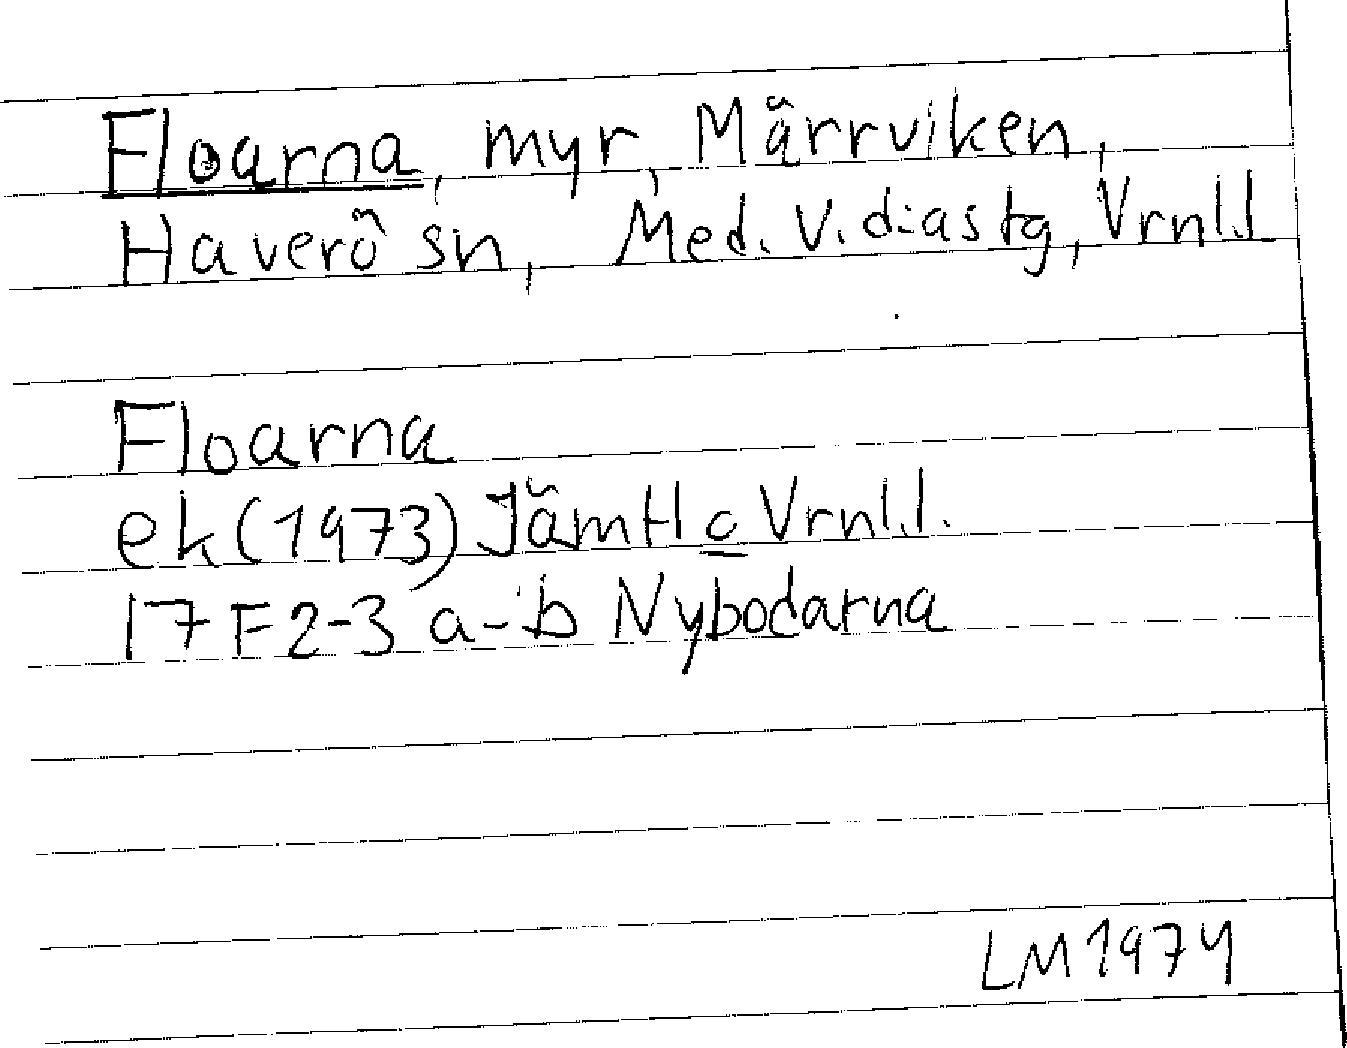 Floarna, myr, Märrviken,
Haverö sn, Med. V. diastg, Vrnl.l
Floarna
ek (1973) Jämtl c Vrnl.l.
17 F 2-3 a-b Nybodarna
LM 1974